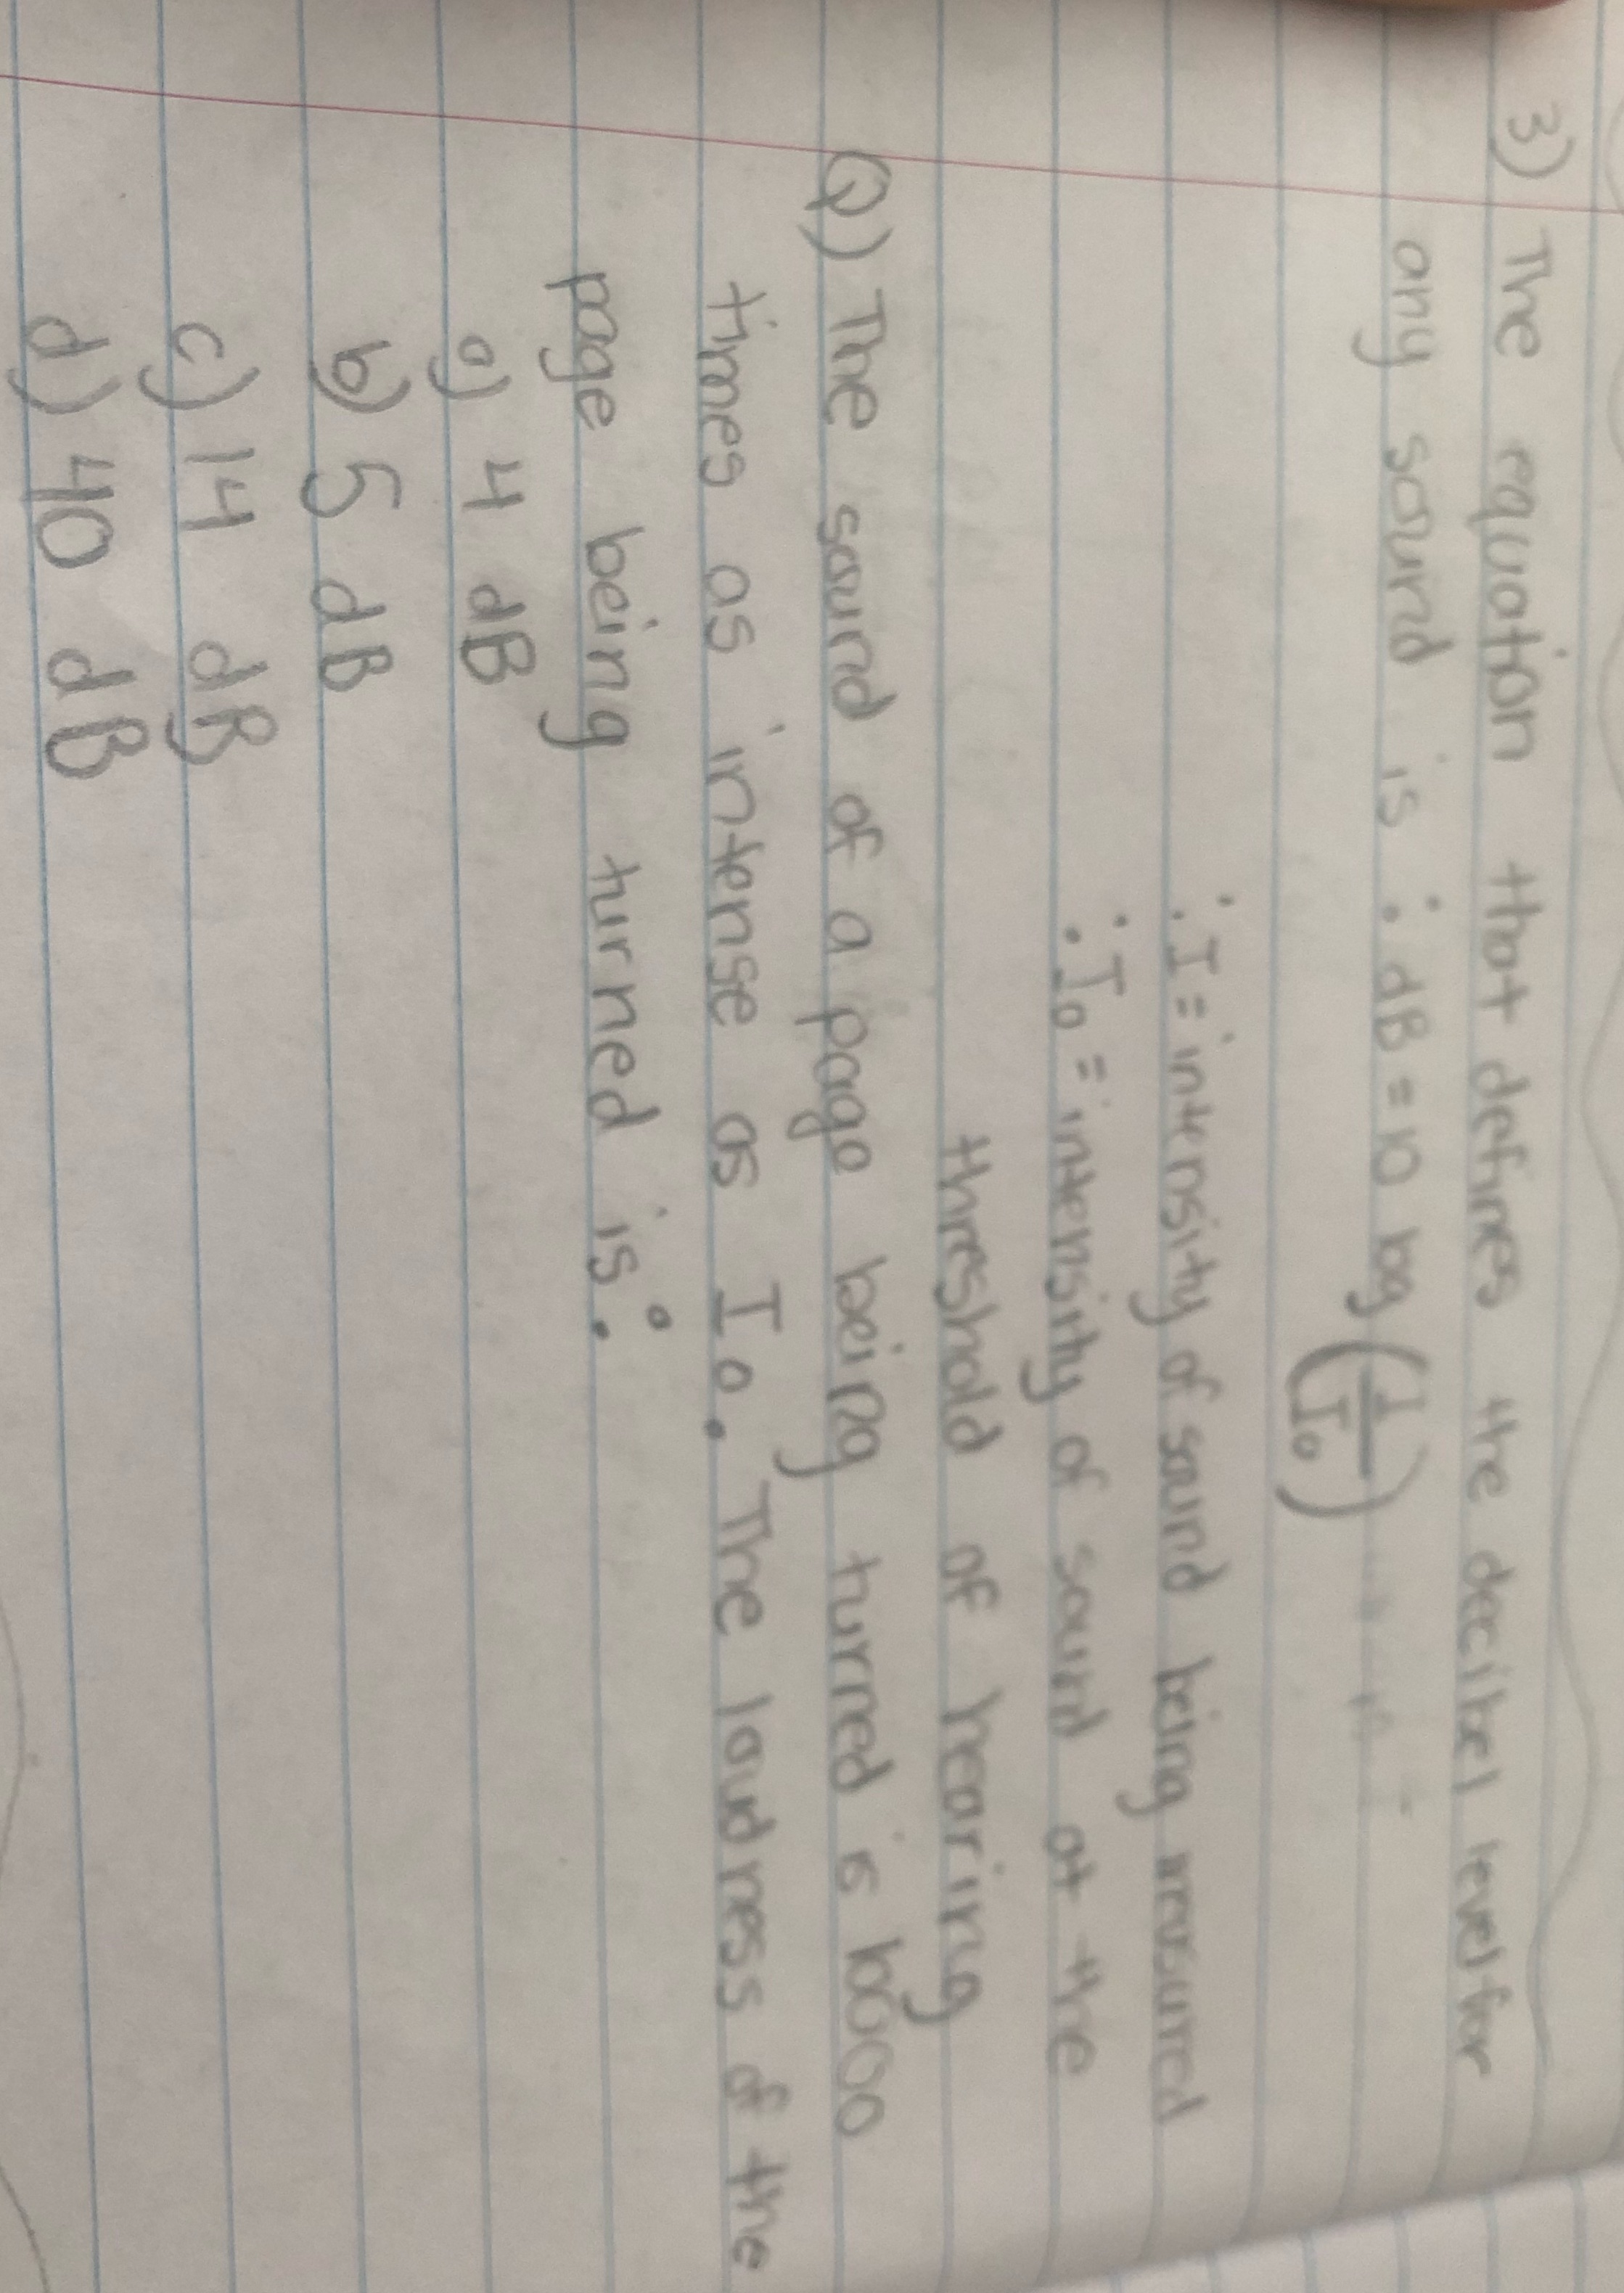 3) The equation that defines the decibel level for
any sound is : dB = 10 log (I/I₀)
: I = intensity of sound being measured
: I₀ = intensity of sound at the
threshold of hearing
Q) The sound of a page being turned is 10000
times as intense as I₀. The loudness of the
page being turned is:
a) 4 dB
b) 5 dB
c) 14 dB
d) 40 dB